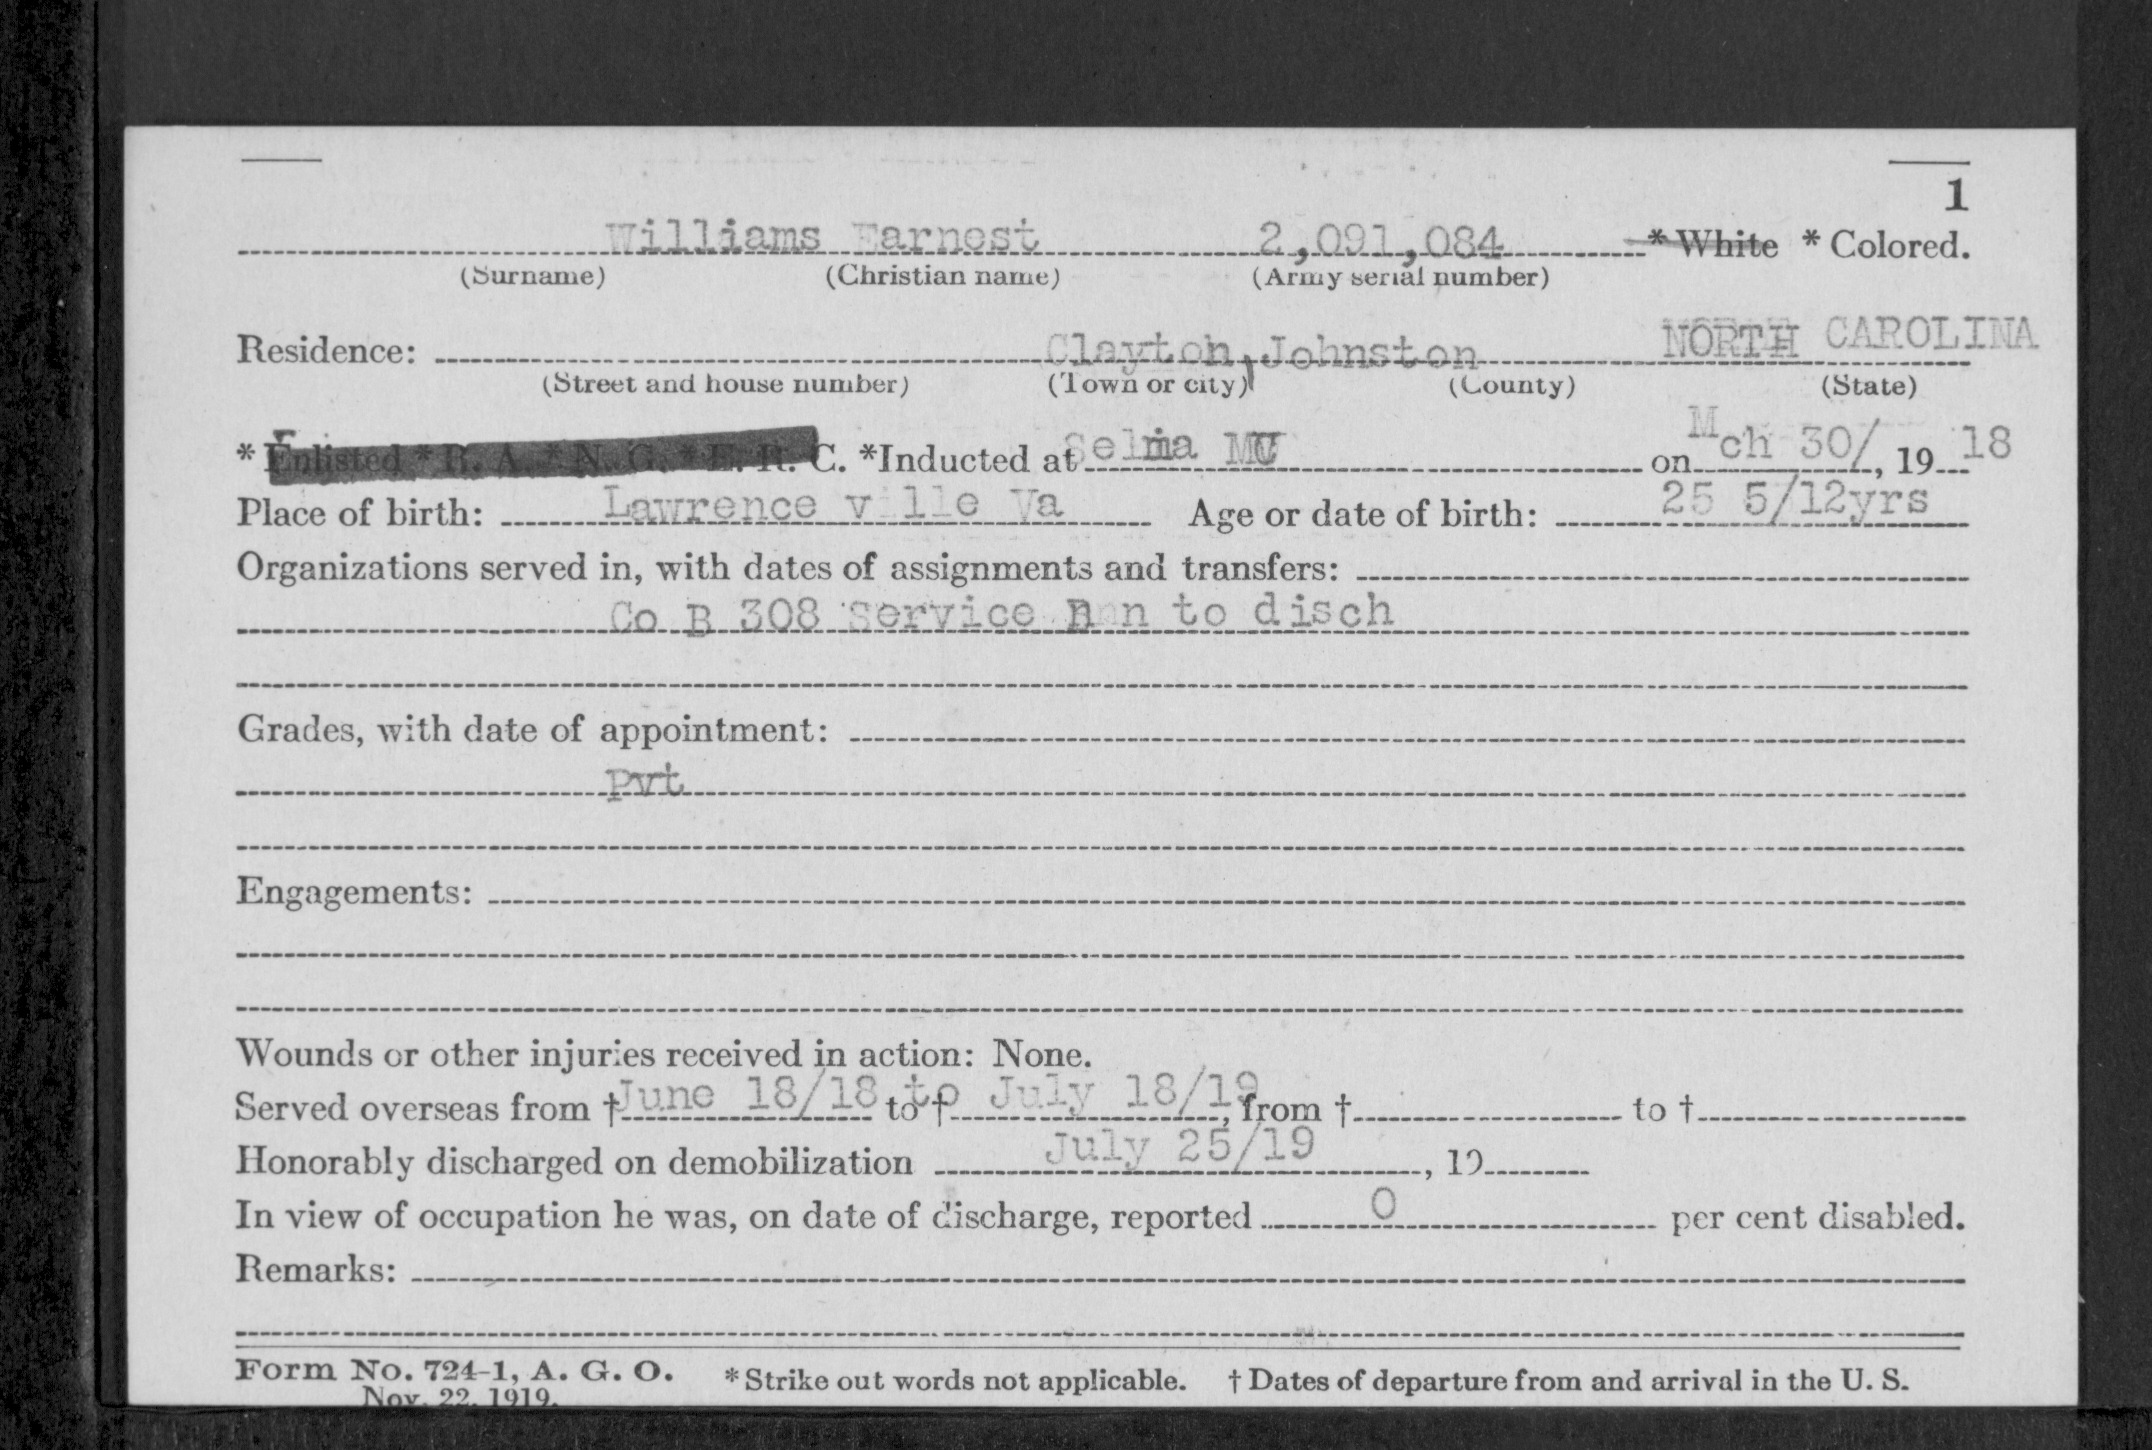 1
Williams Earnest 2,091,084 * White * Colored.
(Surname) (Christian name) (Army serial number)
Residence: Clayton, Johnston NORTH CAROLINA
(Street and house number) (Town or city) (County) (State)
* Enlisted * R. A. * N. G. * E. R. C. *Inducted at Selma on Mch 30/, 19 18
Place of birth: Lawrence ville Va Age or date of birth: 25 5/12yrs
Organizations served in, with dates of assignments and transfers:
Co B 308 Service to disch
Grades, with date of appointment:
Pvt
Engagements:
Wounds or other injuries received in action: None.
Served overseas from † June 18/18 to † to July 18/19, from † to †
Honorably discharged on demobilization July 25/19, 19
In view of occupation he was, on date of discharge, reported 0 per cent disabled.
Remarks:
Form No. 724-1, A. G. O. * Strike out words not applicable. † Dates of departure from and arrival in the U. S.
Nov. 22, 1919.